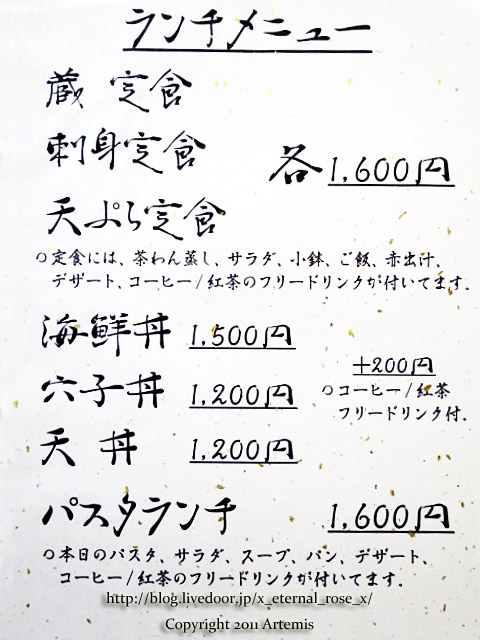 ランチメニュー
蔵 定食
刺身定食
各 1,600円
天ぷら定食
○定食には、茶わん蒸し、サラダ、小鉢、ご飯、赤出汁、
デザート、コーヒー/紅茶のフリードリンクが付いてます。
海鮮丼 1,500円
穴子丼 1,200円
天 丼 1,200円
+200円
○コーヒー/紅茶
フリードリンク付。
パスタランチ 1,600円
○本日のパスタ、サラダ、スープ、パン、デザート、
コーヒー/紅茶のフリードリンクが付いてます。
http://blog.livedoor.jp/x_eternal_rose_x/
Copyright 2011 Artemis